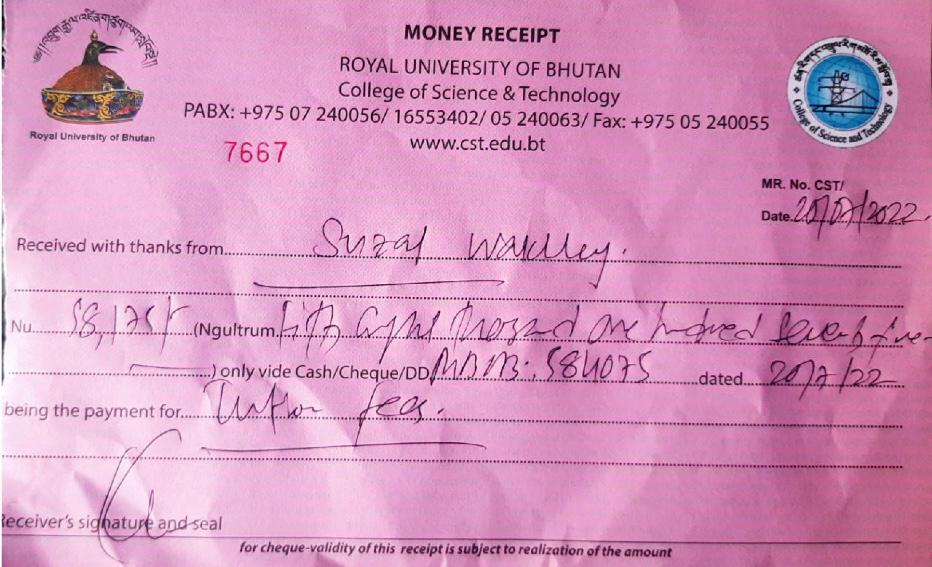 MONEY RECEIPT
ROYAL UNIVERSITY OF BHUTAN
College of Science & Technology
PABX: +975 07 240056/ 16553402/ 05 240063/ Fax: +975 05 240055
www.cst.edu.bt
Royal University of Bhutan
College of Science and Technology
7667
MR. No. CST/
Date. 20/07/2022.
Received with thanks from Suzal Wakley.
Nu 58,175/- (Ngultrum fifty eight thousand one hundred seventy five
) only vide Cash/Cheque/DD 584075 dated 20/7/22
being the payment for Tution fees.
Receiver's signature and seal
for cheque-validity of this receipt is subject to realization of the amount